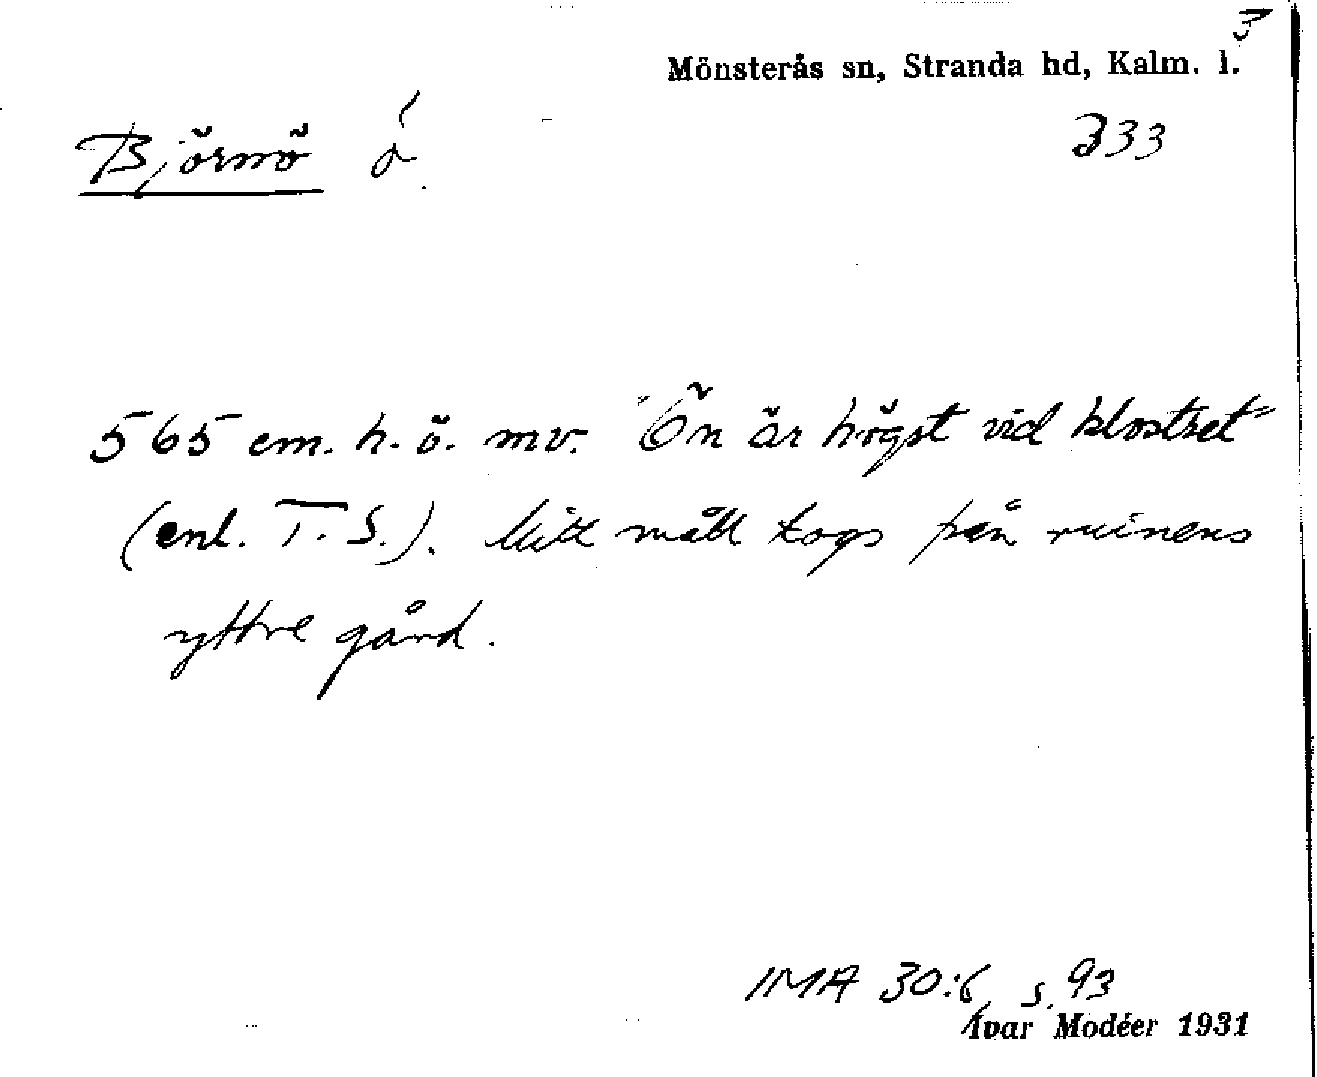 3
Mönsterås sn, Stranda hd, Kalm. l.
333
Björnö ö.
565 cm. h. ö. mv. "Ön är högst vid klostret"
(enl. T. S.). Mitt mått togs på ruinens
yttre gård.
IMA 30:6 s. 93
Ivar Modéer 1931